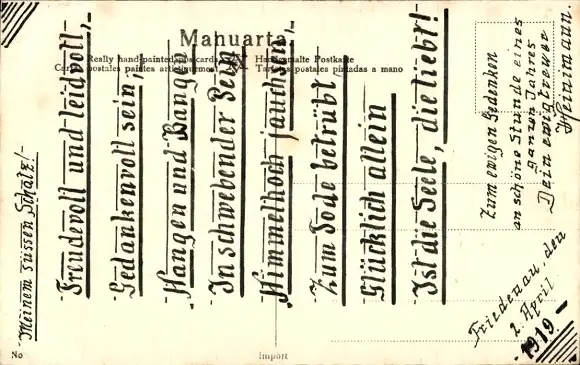 Mahuarta
Really handpainted postcards
Handgemalte Postkarte
Cartes postales paintes artistiquement
Tarjetas postales pintadas a mano
Meinem süssen Schatz!-
Freudevoll und leidvoll,-
Gedankenvoll sein,-
Hangen und Bangen
In schwebender Pein
Himmelhoch jauchzend,-
Zum Tode betrübt
Glücklich allein
Ist die Seele, die liebt!
Zum ewigen Gedenken
an schöne Stunde eines
Dein ewig treuer
Friedenau, den
2. April
-1919-
No
Import